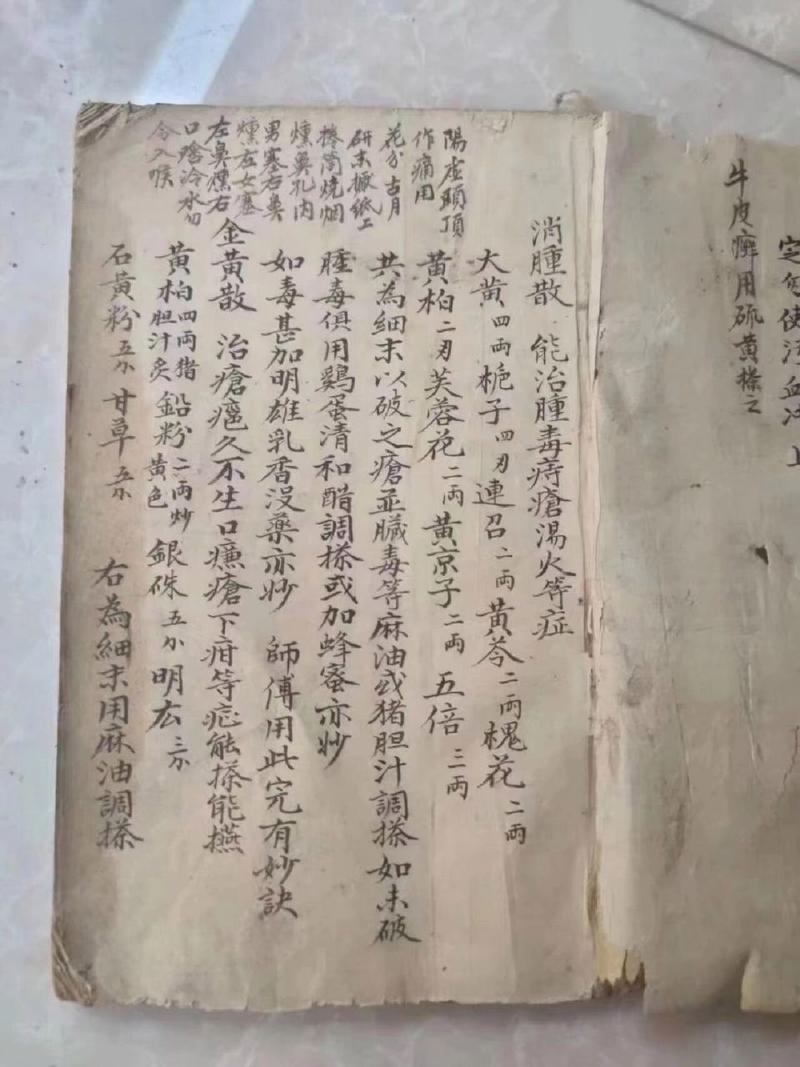 牛皮癬用硫黄搽之
陽虚頭頂
作痛用
花分 古月
研末撳紙上
捲筒烧烟
燻鼻孔内
男塞右鼻
燻左女塞
左鼻燻右
口啥冷水勿
令入喉
消腫散 能治腫毒痔瘡湯火等症
大黄四両栀子四刃連召二両黄芩二両槐花二両
黄柏二刃芙蓉花二両黄京子二両五倍三両
共為細末以破之瘡並臟毒等麻油或猪胆汁調搽如未破
腫毒俱用鷄蛋清和醋調搽或加蜂蜜亦妙
如毒甚加明雄乳香没藥亦妙 師傅用此完有妙訣
金黄散 治瘡疤久不生口臁瘡下疳等症能搽能㩙
黄柏四両猪胆汁炙鉛粉二両炒黄色銀硃五小明玄三小
石黄粉五小甘草五小 右為細末用麻油調搽